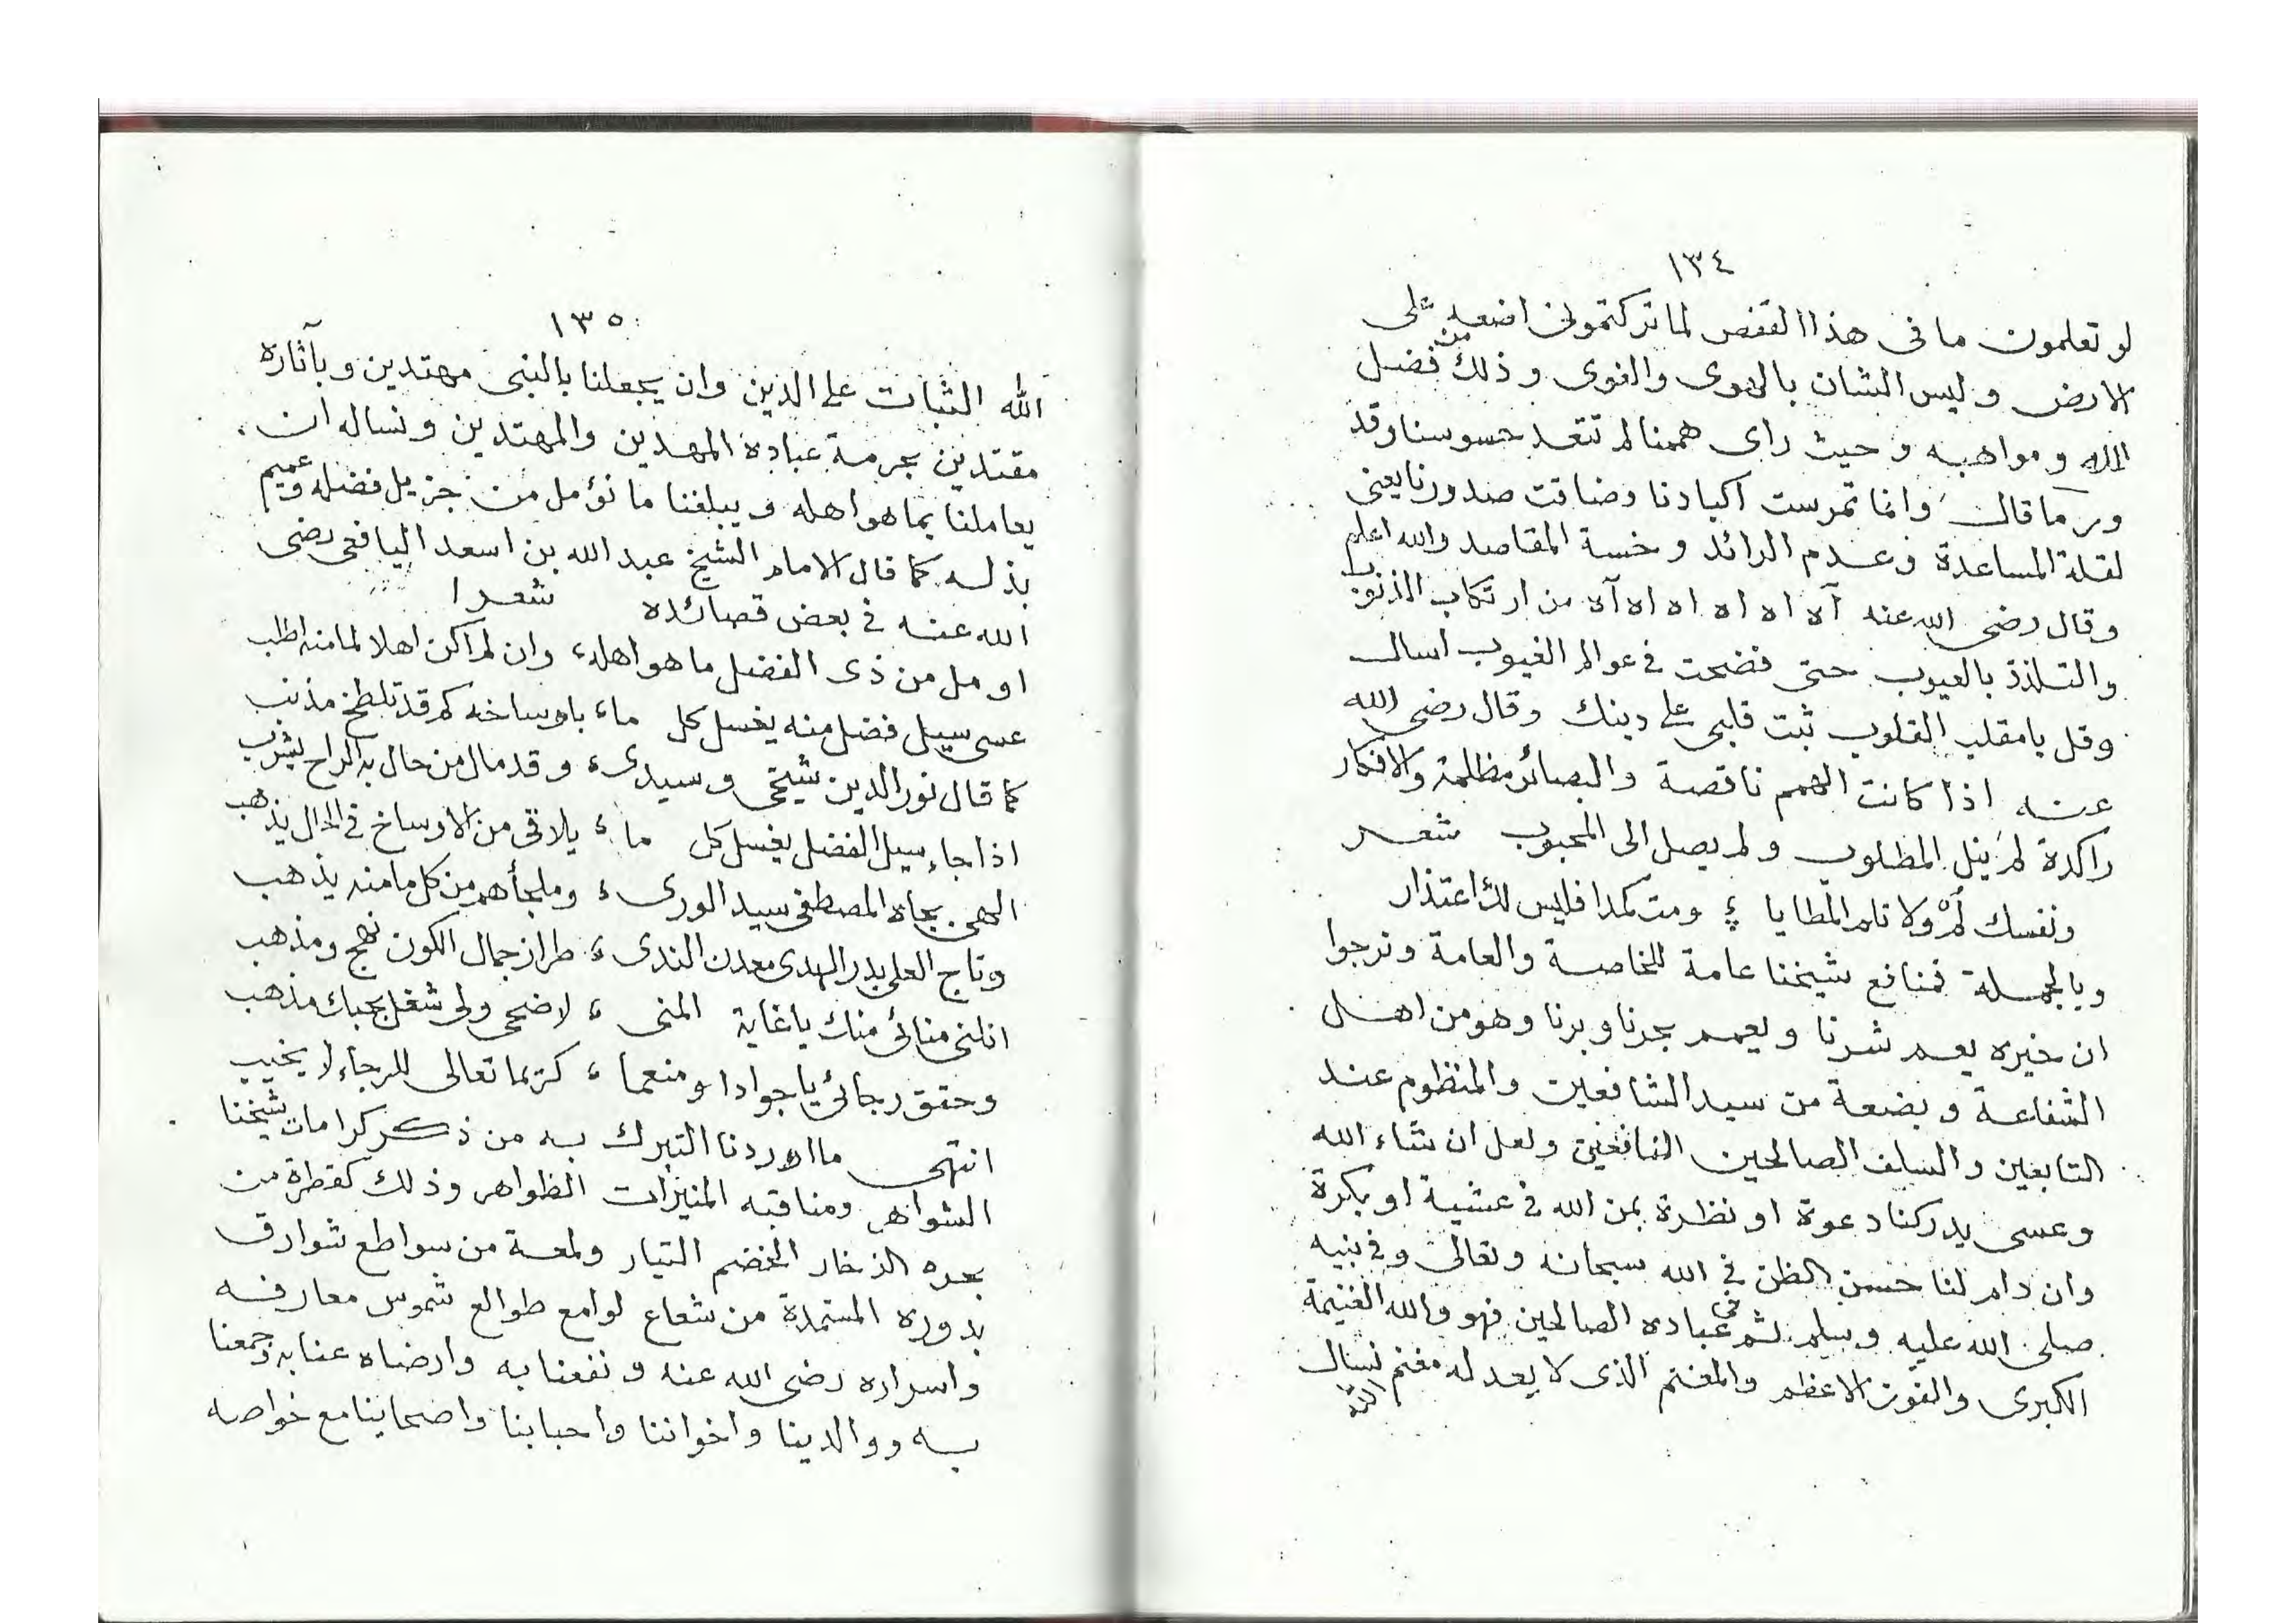 ١٣٤
لو تعلمون ما فى هذا القفص لما تركتمونى اضعه على
الارض وليس الشان بالهوى والقوى وذلك من فضل
الله ومواهبه وحيث راى هممنا لم تتعد حسوسنا وقد
ما قال وانما تمرست اكبادنا وضاقت صدورنا يعنى
لقلة المساعدة وعدم الرائد وخسة المقاصد والله اعلم
وقال رضى الله عنه آه اه اه اه اه آه من ارتكاب الذنوب
والتلذذ بالعيوب حتى فضحت فى عوالم الغيوب اسال
وقل يا مقلب القلوب ثبت قلبى على دينك وقال رضى الله
عنه اذا كانت الهمم ناقصة والبصائر مظلمة والافكار
راكدة لم ينل المطلوب ولم يصل الى المحبوب شعر
ونفسك لُمْ ولا تلم المطايا ؛ ومت كمدا فليس لك اعتذار
وبالجملة فمنافع شيخنا عامة للخاصة والعامة ونرجوا
ان خيره يعم شرنا ويعمم بحرنا وبرنا وهو من اهل
الشفاعة وبضعة من سيد الشافعين والمنظوم عند
التابعين والسلف الصالحين النافعين ولعل ان شاء الله
وعسى يدركنا دعوة او نظرة بمن الله فى عشية او بكرة
وان دام لنا حسن الظن فى الله سبحانه وتعالى وفى نبيه
صلى الله عليه وسلم ثم فى عباده الصالحين فهو والله الغنيمة
الكبرى والفوت الاعظم والمغنم الذى لا يعد له مغنم نسال
الله
١٣٥
الله الثبات على الدين وان يجعلنا بالنبى مهتدين وبآثاره
مقتدين بحرمة عباده المهدين والمهتدين ونساله ان
يعاملنا بما هو اهله ويبلغنا ما نؤمل من جزيل فضله وعميم
بذله كما قال الامام الشيخ عبد الله بن اسعد اليافعى رضى
الله عنه فى بعض قصائده شعرا
اومل من ذى الفضل ما هو اهله ، وان لم اكن اهلا لما منه اطلب
عسى سيل فضل منه يغسل كل ما ، باوساخه كم قد تلطخ مذنب
كما قال نور الدين شيخى وسيدى ، وقد مال من حال به الراح يشرب
اذا جاء سيل الفضل يغسل كل ما ، يلاقى من الاوساخ فى الحال يذهب
الهى بجاه المصطفى سيد الورى ، وملجأهم من كل ما منه يذهب
وتاج العلى بدر الهدى معدن الندى ، طراز جمال الكون نهج ومذهب
انلنى منائى منك يا غاية المنى ، لاضحى ولى شغل بحبك مذهب
وحقق رجائى يا جوادا ومنعما ، كريما تعالى للرجاء لا يخيب
انتهى ما اوردنا التبرك به من ذكر كرامات شيخنا
الشواهر ومناقبه المنيرات الظواهر وذلك كقطرة من
بحره الذخار الخضم التيار ولمعة من سواطع شوارق
بدوره المستمدة من شعاع لوامع طوالع شموس معارفه
واسراره رضى الله عنه ونفعنا به وارضاه عنا به وجمعنا
به ووالدينا واخواننا واحبابنا واصحابنا مع خواصه